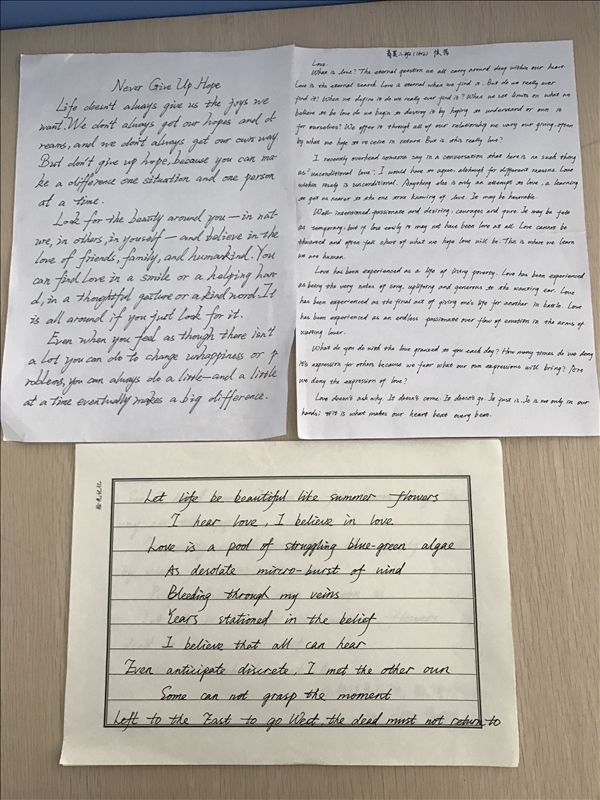 Never Give Up Hope
Life doesn't always give us the joys we
want. We don't always get our hopes and d-
reams, and we don't always get our own way.
But don't give up hope, because you can ma-
ke a difference one situation and one person
at a time.
Look for the beauty around you—in nat
ure, in others, in yourself—and believe in the
love of friends, family, and humankind. You
can find love in a smile or a helping han
d, in a thoughtful gesture or a kind word. It
is all around if you just look for it.
Even when you feel as though there isn't
a lot you can do to change unhappiness or p
roblems, you can always do a little—and a little
at a time eventually makes a big difference.
Love
What is love? The eternal question we all carry around deep within our heart.
Love is the eternal search. Love is eternal when we find it. But do we really ever
find it? When we define it do we really ever find it? When we set limits on what we
believe to be love do we begin to destroy it by hoping to understand or own it
for ourselves? We offer it through all of our relationship we vary our giving, often
by what we hope to receive in return. But is this really love?
I recently overheard someone say in a conversation that there is no such thing
as "unconditional love". I would have to agree, although for different reasons. Love
within itself is unconditional. Anything else is only an attempt to love, a learning
to get us nearer to the one knowing of love. It may be honorable.
Well-intentioned, passionate and desiring, courages and pure. It may be felt
as temporary, but if love easily it may not have been love at all. Love cannot be
thwarted and often fall short of what we hope love will be. This is where we learn
we are human.
Love has been experienced as a life of living poverty. Love has been experienced
as being the very notes of song, uplifting and generous to the wanting ear. Love
has been experienced as the final act of giving one's life for another in battle. Love
has been experienced as an endless passionate over flow of emotion in the arms of
waiting lover.
What do you do with the love granted to you each day? How many times do we deny
it's expression for others because we fear what our own expressions will bring? Are
we deny the expression of love?
Love doesn't ask why. It doesn't come. It doesn't go. It just is. It is not only in our
hands; it is what makes our heart beat every beat.
Let life be beautiful like summer flowers
I hear love, I believe in love
Love is a pool of struggling blue-green algae
As desolate micro-burst of wind
Bleeding through my veins
Years stationed in the belief
I believe that all can hear
Even anticipate discrete, I met the other own
Some can not grasp the moment
Left to the East to go West, the dead must not return to